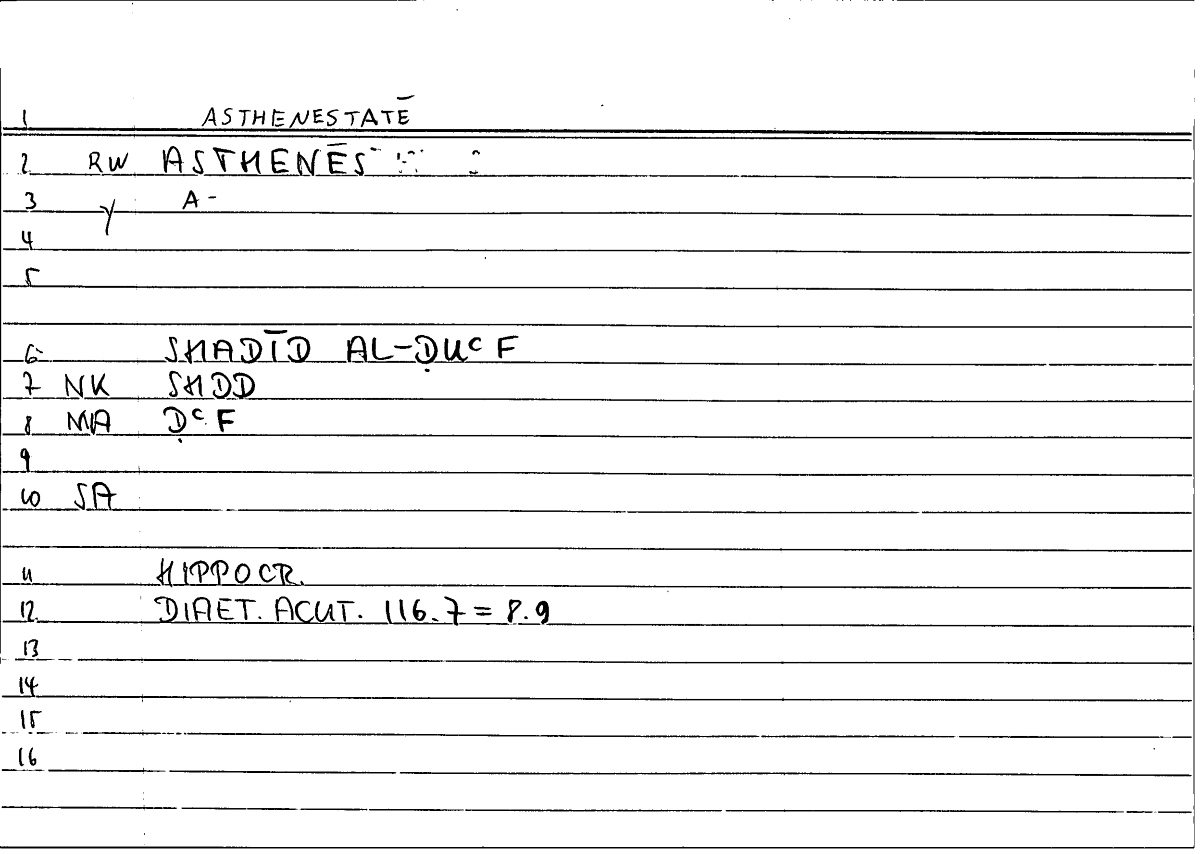 1 ASTHENESTATĒ
2 RW ASTHENĒS
3 Y A-
4
5
6 SHADĪD AL-ḌUᶜF
7 NK SHDD
8 MA ḌᶜF
9
10 SA
11 HIPPOCR.
12 DIAET. ACUT. 116.7 = 8.9
13
14
15
16